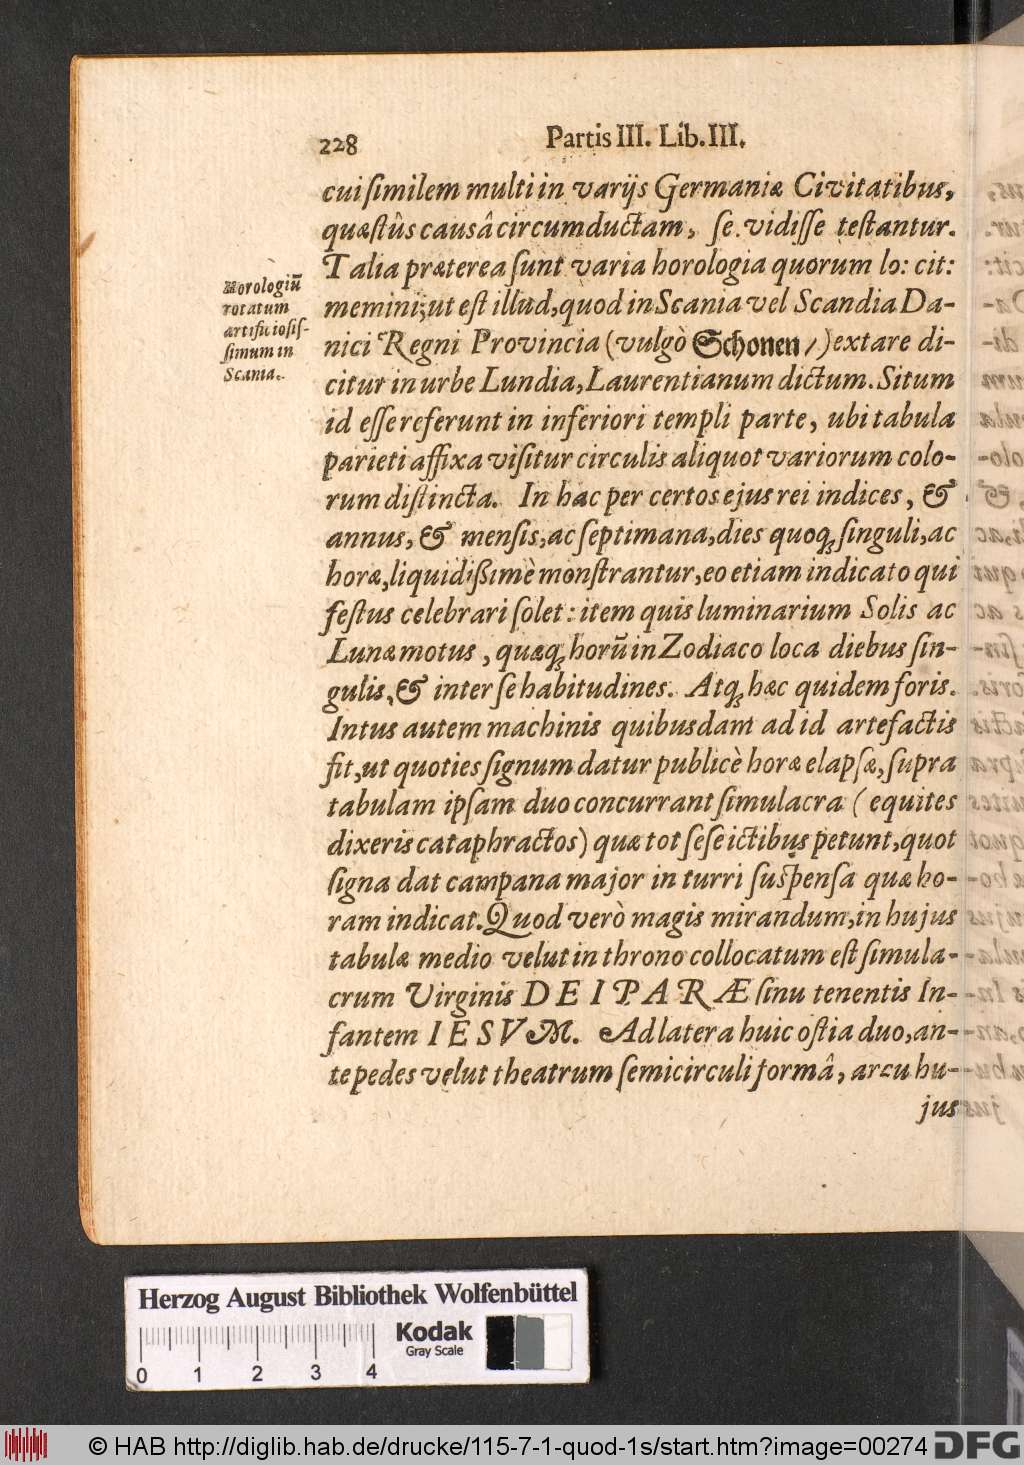 228
Partis III. Lib. III.
cui similem multi in varijs Germaniæ Civitatibus,
quæstûs causâ circumductam, se vidisse testantur.
Talia præterea sunt varia horologia quorum lo: cit:
memini; ut est illud, quod in Scania vel Scandia Da-
nici Regni Provincia (vulgò Schonen/) extare di-
citur in urbe Lundia, Laurentianum dictum. Situm
id esse referunt in inferiori templi parte, ubi tabula
parieti affixa visitur circulis aliquot variorum colo-
rum distincta. In hac per certos ejus rei indices, &
annus, & mensis, ac septimana, dies quoq; singuli, ac
horæ, liquidißimè monstrantur, eo etiam indicato qui
festus celebrari solet: item quis luminarium Solis ac
Lunæ motus, quæq; horũ in Zodiaco loca diebus sin-
gulis, & inter se habitudines. Atq; hæc quidem foris.
Intus autem machinis quibusdam ad id artefactis
fit, ut quoties signum datur publicè horæ elapsæ, supra
tabulam ipsam duo concurrant simulacra (equites
dixeris cataphractos) quæ tot sese ictibus petunt, quot
signa dat campana major in turri suspensa quæ ho-
ram indicat. Quod verò magis mirandum, in hujus
tabulæ medio velut in throno collocatum est simula-
crum Virginis DEIPARÆ sinu tenentis In-
fantem IESVM. Ad latera huic ostia duo, an-
te pedes velut theatrum semicirculi formâ, arcu hu-
jus
Horologiũ
rotatum
artificiosis-
simum in
Scania.
Herzog August Bibliothek Wolfenbüttel
Kodak
Gray Scale
0 1 2 3 4
© HAB http://diglib.hab.de/drucke/115-7-1-quod-1s/start.htm?image=00274
DFG